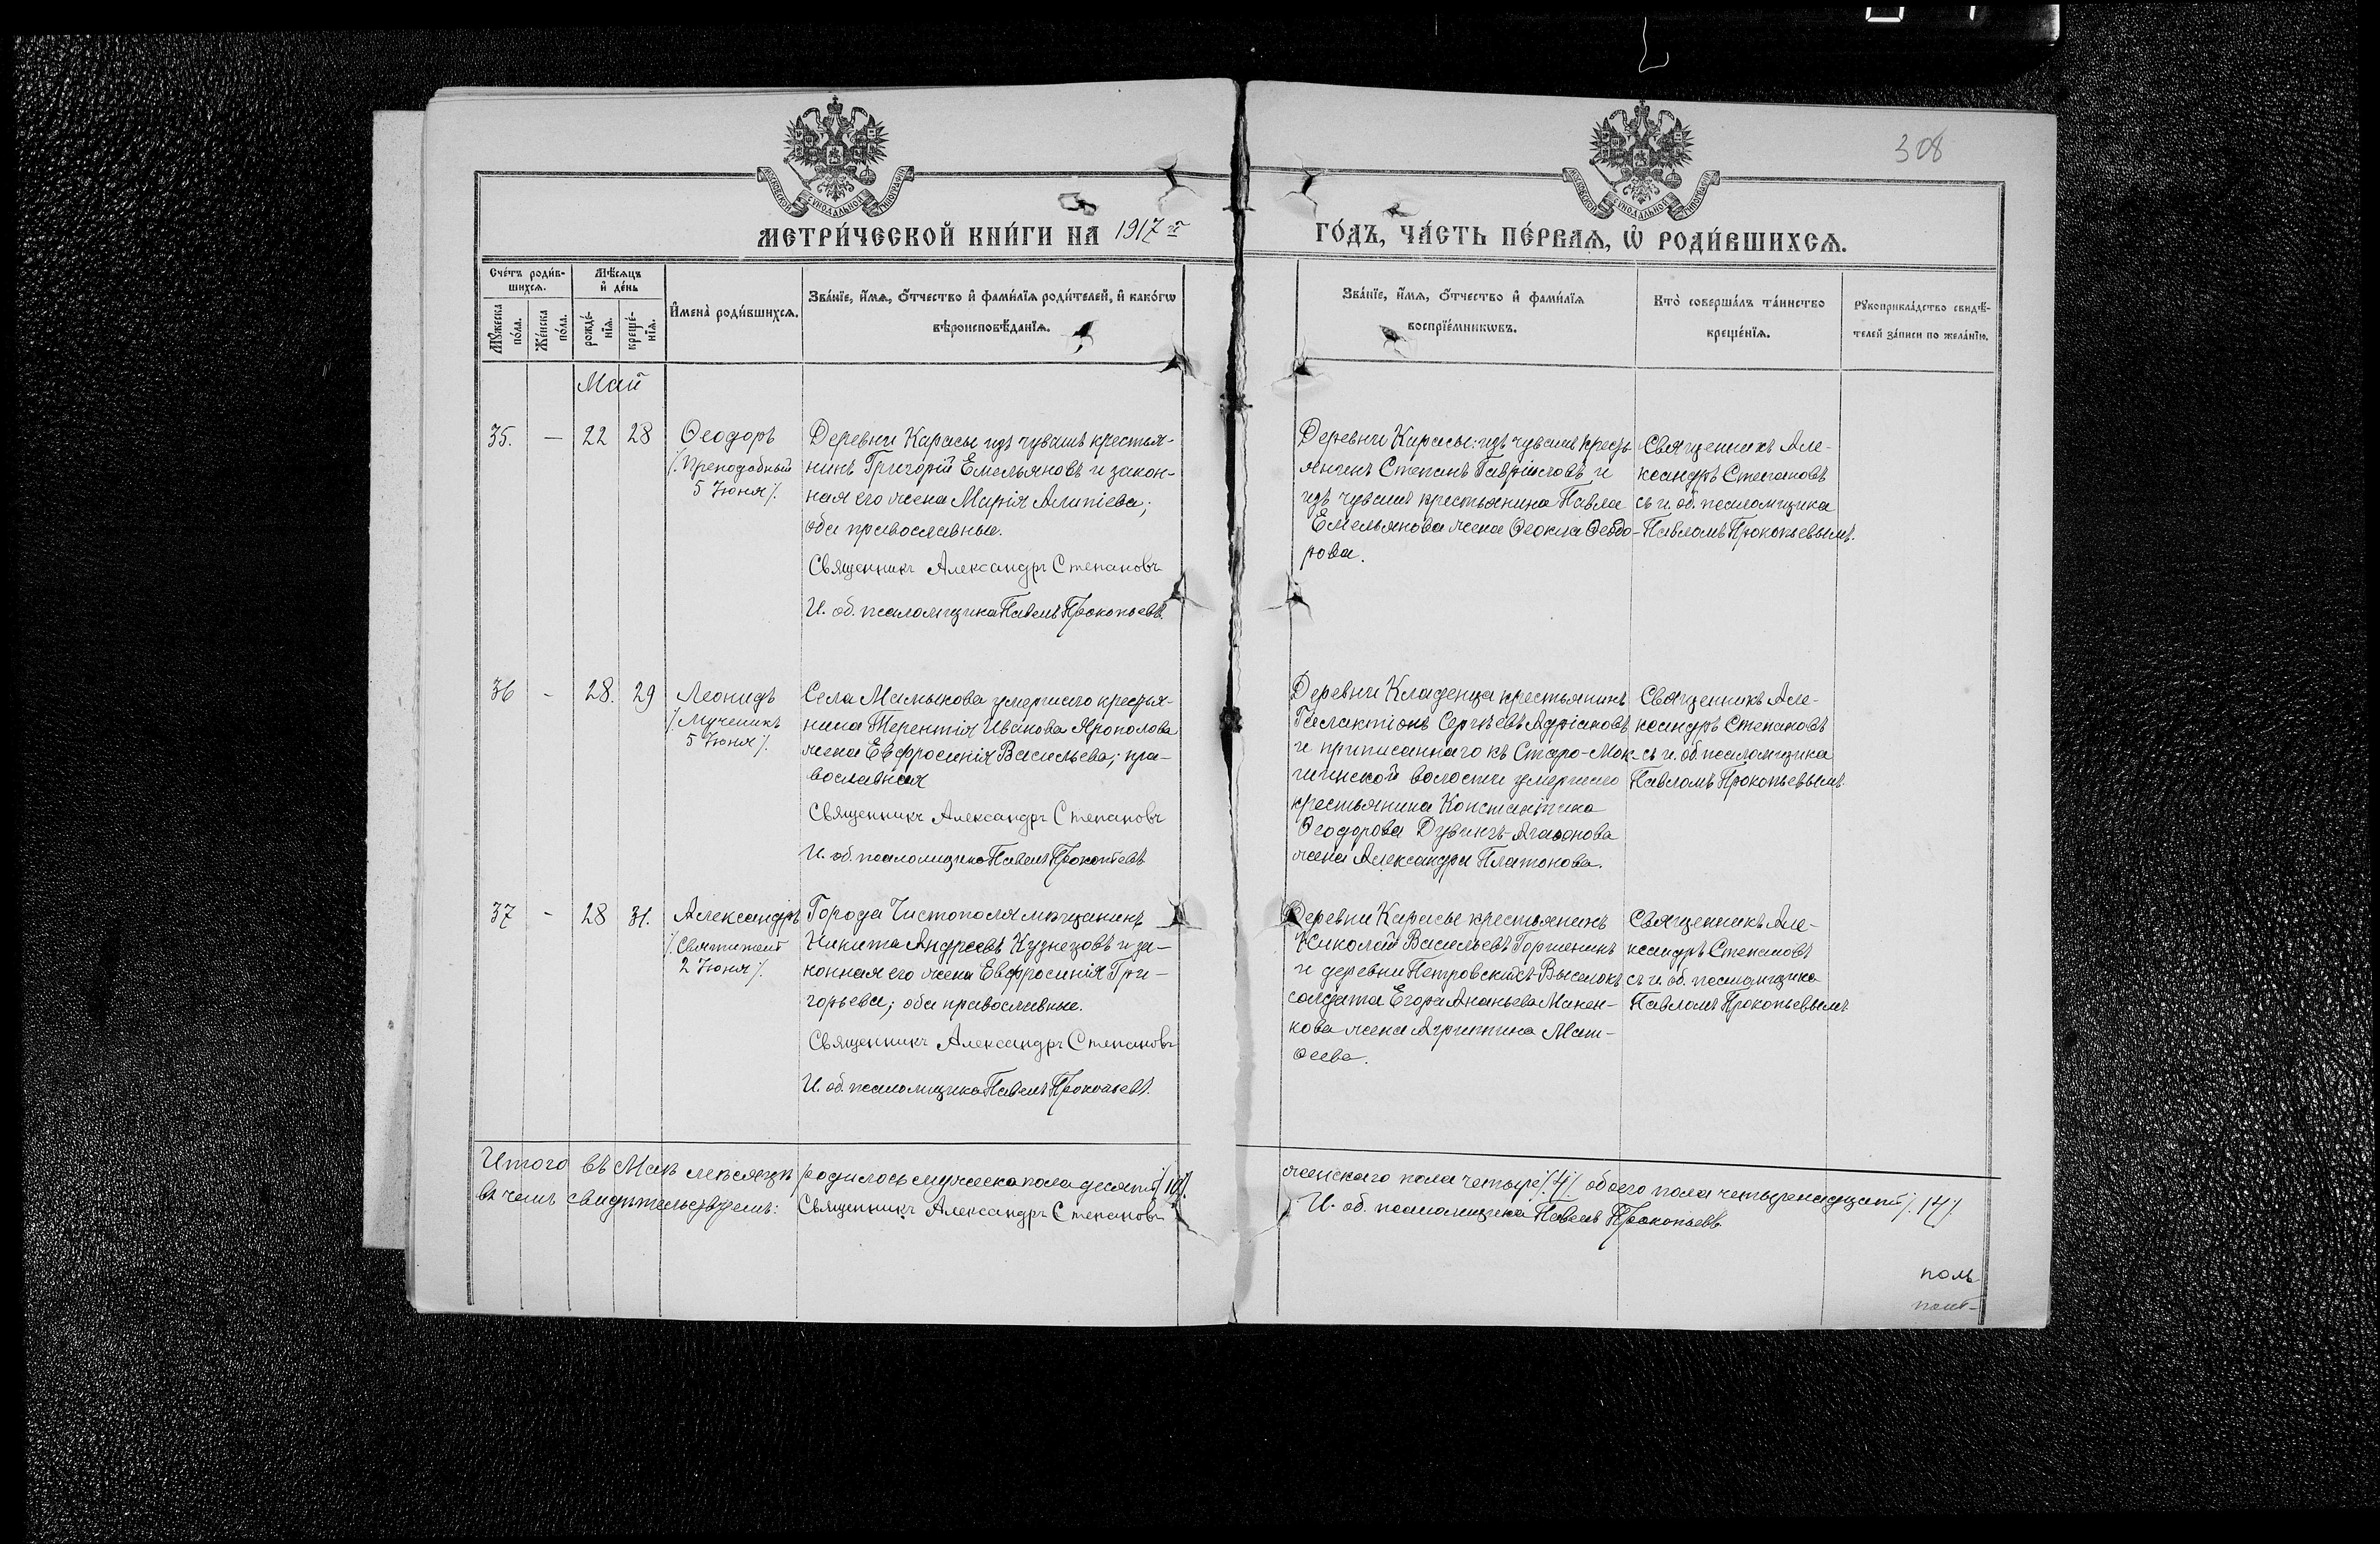 308
МОСКОВСКОЙ СѴНОДАЛЬНОЙ ТИПОГРАФІИ
МОСКОВСКОЙ СѴНОДАЛЬНОЙ ТИПОГРАФІИ
МЕТРИ́ЧЕСКОЙ КНИ́ГИ НА 1917 й
ГО́ДЪ, ЧА́СТЬ ПЕ́РВАЯ, Ѡ РОДИ́ВШИХСЯ.
Сче́тъ роди́в-
шихся.
Мꙋ́жеска по́ла.
Же́нска по́ла.
Мѣ́сяцъ и де́нь
рожде́-нїя.
креще́-нїя.
Имена̀ роди́вшихся.
Зва́нїе, и́мя, о́тчество и фами́лїя роди́телей, и како́гѡ
вѣроисповѣ́данїя.
Зва́нїе, и́мя, о́тчество и фами́лїя
воспрїе́мникѡвъ.
Кто̀ соверша́лъ та́инство
креще́нїя.
Рꙋкоприкла́дство свидѣ́-
телей за́писи по жела́нїю.
Май
35. — 22 28
Ѳеодоръ
/. Преподобный
5 Іюня /.
Деревни Карасы изъ чувашъ крестья-
нинъ Григорій Емельяновъ и закон-
ная его жена Марія Алипіева;
оба православные.
Священникъ Александръ Степановъ
И. об. псаломщика Павелъ Прокопьевъ.
Деревни Карасы: изъ чувашъ кресть-
янинъ Степанъ Гавріиловъ и
изъ чувашъ крестьянина Павла
Емельянова жена Ѳеокла Ѳеодо-
рова.
Священникъ Але-
ксандръ Степановъ
съ и. об. псаломщика
Павломъ Прокопьевымъ.
36 - 28. 29
Леонидъ
/. Мученикъ
5 Іюня /.
Села Мамыкова умершаго крестья-
нина Терентія Иванова Ярополова
жена Евфросинія Васильева; пра-
вославная
Священникъ Александръ Степановъ
И. об. псаломщика Павелъ Прокопьевъ
Деревни Кладенца крестьянинъ
Галактіонъ Сергѣевъ Адріановъ
и приписаннаго къ Старо-Мок-
шинской волости умершаго
крестьянина Константина
Ѳеодорова Агаѳонова
жена Александра Платонова.
Священникъ Але-
ксандръ Степановъ
съ и. об. псаломщика
Павломъ Прокопьевымъ.
37 - 28 31.
Александръ
/. Святитель
2 Іюня /.
Города Чистополя мѣщанинъ
Никита Андреевъ Кузнецовъ и за-
конная его жена Евфросинія Гри-
горьева; оба православные.
Священникъ Александръ Степановъ
И. об. псаломщика Павелъ Прокопьевъ.
Деревни Карасы крестьянинъ
Николай Васильевъ
и деревни Петровскихъ-Выселокъ
солдата Егора Ананьева Макен-
кова жена Агриппина Мат-
ѳеева.
Священникъ Але-
ксандръ Степановъ
съ и. об. псаломщика
Павломъ Прокопьевымъ
Итого въ Маѣ мѣсяцѣ родилось мужеска пола десять /10/.
женскаго пола четыре /.4/. обоего пола четырнадцать /.14/.
въ чемъ свидѣтельствуемъ: Священникъ Александръ Степановъ
И. об. псаломщика Павелъ Прокопьевъ